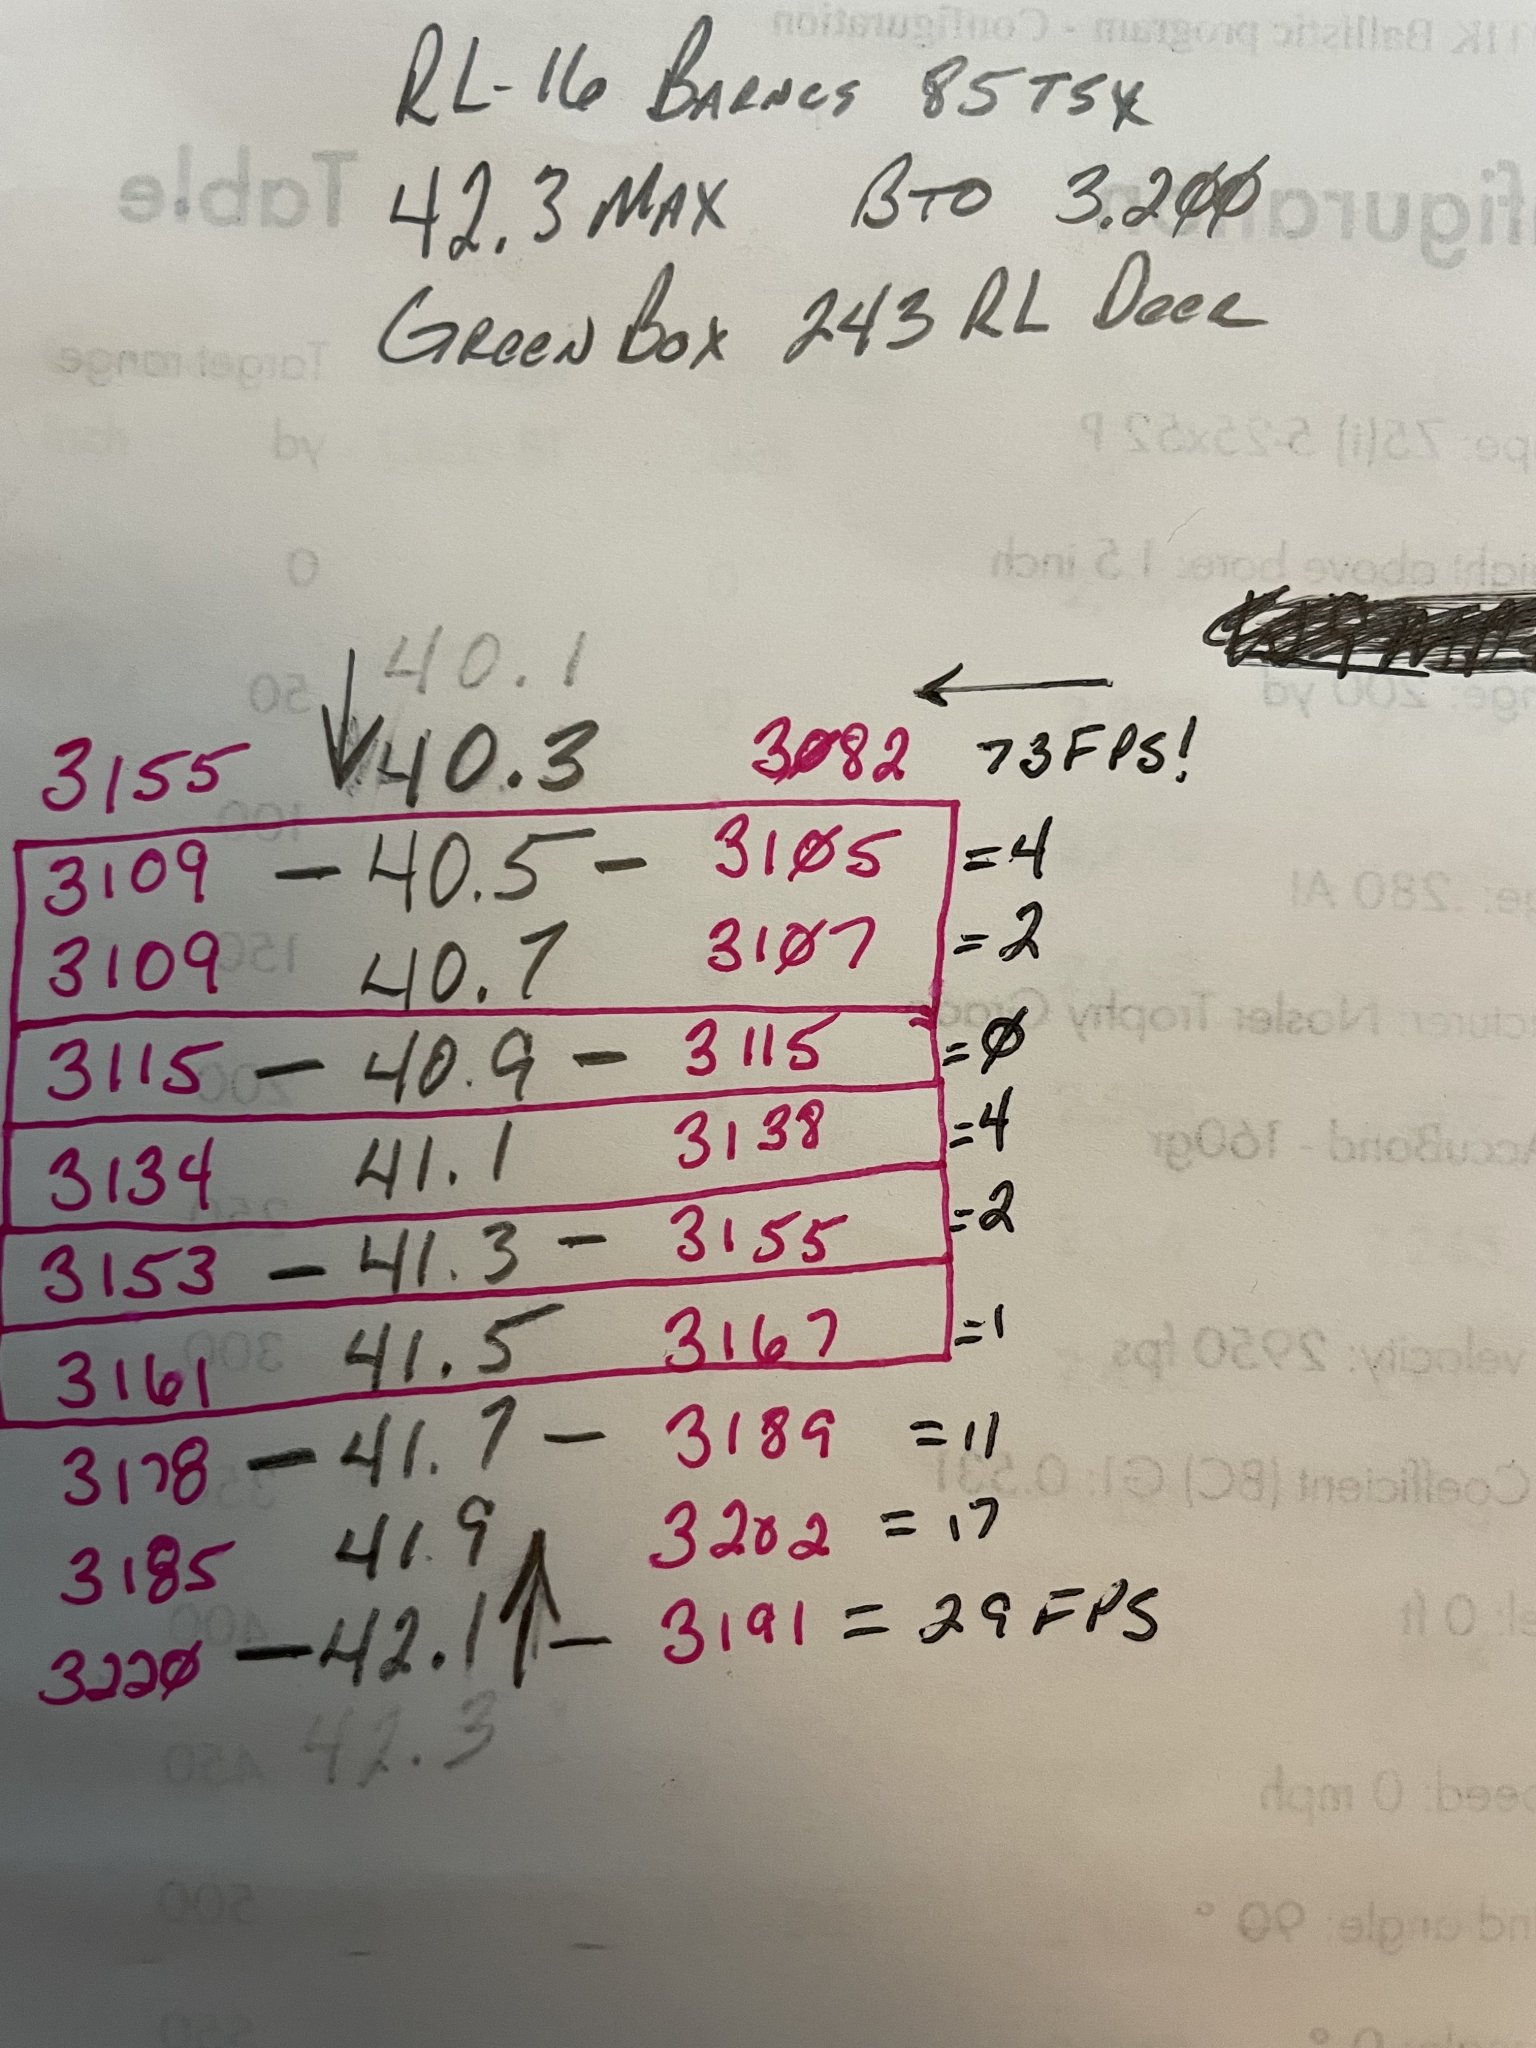 RL-16 BARNES 85 TSX
42.3 MAX BTO 3.2ØØ
GREEN BOX 243 RL DEER
40.1
3155 40.3 3Ø82 73 FPS!
3109 - 40.5 - 31Ø5 = 4
3109 40.7 31Ø7 = 2
3115 - 40.9 - 3115 = Ø
3134 41.1 3138 = 4
3153 - 41.3 - 3155 = 2
3161 41.5 3167 = 1
3178 - 41.7 - 3189 = 11
3185 41.9 32Ø2 = 17
322Ø - 42.1 - 3191 = 29 FPS
42.3